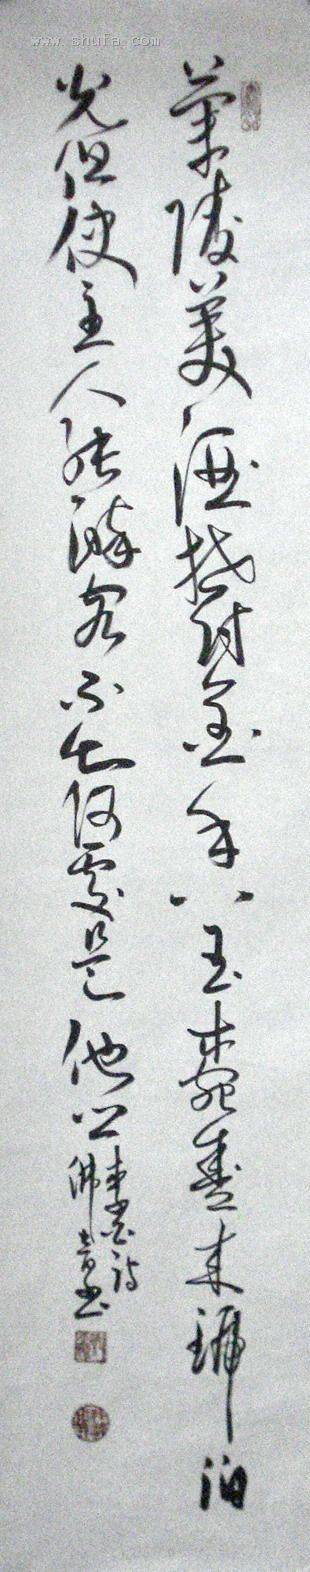 www.shufa.com
蘭陵美酒鬱金香玉椀盛來琥珀
光但使主人能醉客不知何處是他鄉
李白詩
佛音書